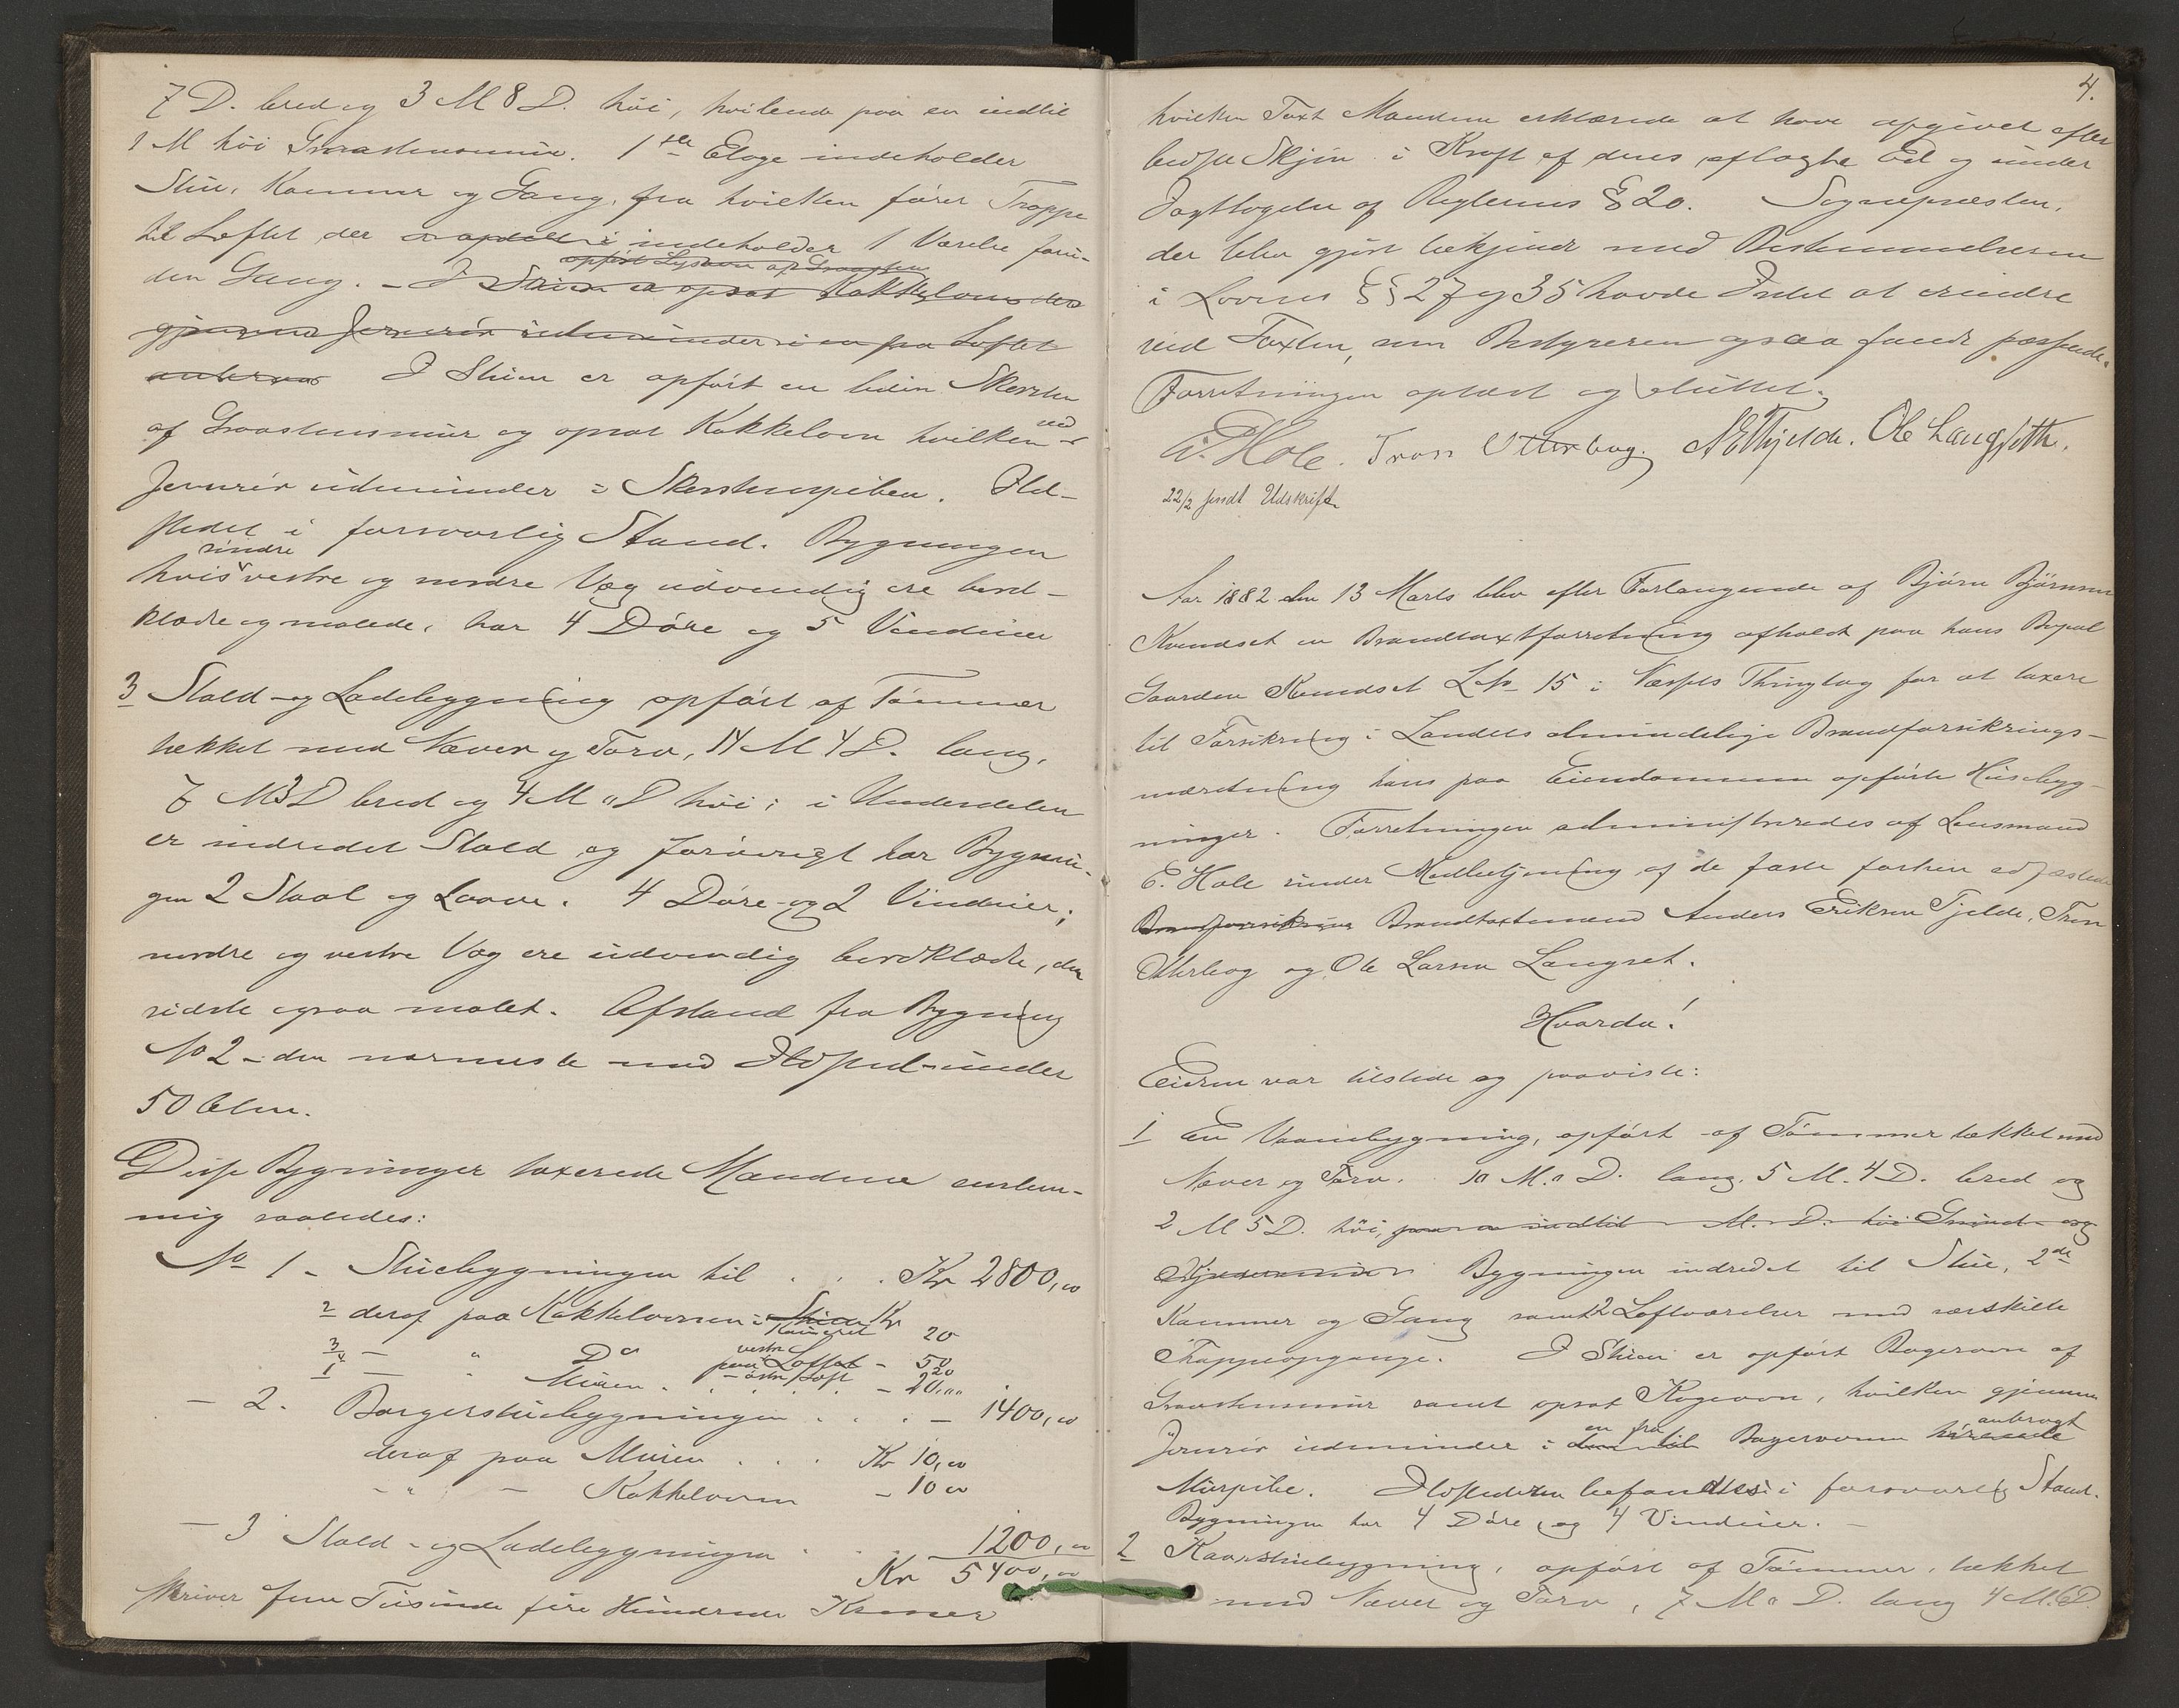 7 D. bred og 3 M 8 D. höi, hvilende paa en indtil
1 M höi Graastensmuur. 1ste Etage indeholder
Stue, Kammer og Gang, fra hvilken fører Trappe
til Loftet der er opdelt i indeholder 1 Værelse foru-
den Gang. - I Stuen er opsat Kakkelovn der
opført Lysovn af Graasten
gjennem Jernrör udmunder i en fra Loftet
anbragt I Stuen er opfört en liden Skorsten
af Graastensmur og opsat Kakkelovn hvilken ved
Jernrör udmunder i Skorstenspiben. Ild-
stedet i forsvarlig Stand. Bygningen
hvis søndre vestre og nordre Væg udvendig ere bord-
klædte og malede, har 4 Döre og 5 Vinduer
3 Stald- og Ladebygning opfört af Tömmer
tækket med Næver og Torv, 14 M 4 D. lang,
7 M 3 D bred og 4 M " D höi; i Underdelen
er indredet Stald og forövrigt har Bygnin-
gen 2 Staal og Laave. 4 Döre og 2 Vinduer;
nordre og vestre Væg ere udvendig bordklædte, den
sidste ogsaa malet. Afstand fra Bygning
No 2 - den nærmeste med Ildsted - under
50 Alen.
Disse Bygninger taxerede Mændene enstem-
mig saaledes:
No 1 - Stuebygningen til . . . Kr 2800,00
2 deraf paa Kakkelovnen i Stuen Kammeret Kr 20
3/4 - " Do paa vestre Loftet - 50
- østre Loft 20
1 - " Muren . . . . - 20,00
- 2. Borgerstuebygningen . . . - 1400,00
deraf paa Muren . . . Kr 10,00
- " - Kakkelovnen - 10 00
- 3 Stald- og Ladebygningen . . 1200,00
Kr 5400,00
skriver fem Tusinde fire Hundrede Kroner
4.
hvilken Taxt Mændene erklærede at have afgivet efter
bedste Skjön i Kraft af deres aflagte Ed og under
Iagttagelse af Reglernes § 20. Sognepræsten,
der blev gjort bekjendt med Bestemmelserne
i Lovens §§ 27 og 35 havde Intet at erindre
ved Taxten, som Bestyreren ogsaa fandt passende.
Forretningen oplæst og sluttet.
E. Hole. Tron Utterbog. A E Thjelde. Ole Langseth.
22/2 sendt Udskrift
Aar 1882 den 13 Marts blev efter Forlangende af Björn Björnsen
Kvendset en Brandtaxtforretning afholdt paa hans Bopæl
Gaarden Kvendset L No 15 i Næssets Thinglag for at taxere
til Forsikring i Landets almindelige Brandforsikrings-
indretning hans paa Eiendommen opförte Husebyg-
ninger. Forretningen administreredes af Lensmand
E. Hole under Medbetjening af de faste forhen edfæstede
Brandforsikrings Brandtaxtmænd Anders Eriksen Tjelde, Tron
Utterbog og Ole Larsen Langset.
Hvorda!
Eieren var tilstede og paaviste:
1 En Vaaningbygning, opfört af Tömmer tækket med
Næver og Torv. 10 M. " D. lang. 5 M. 4 D. bred og
2 M 5 D. höi, paa en indtil M. D. höi Grund- og
Kjeldermuur Bygningen indredet til Stue, 2de
Kammer og Gang samt 2 Loftværelser med særskilte
Trappeopgange. I Stuen er opfört Bagerovn af
Graastensmur samt opsat Kogeovn, hvilken gjennem
Jernrör udmunder i den til en fra Bagerovnen hörende anbragt
Murpibe. Ildstederne befandtes i forsvarlig Stand.
Bygningen har 4 Döre og 4 Vinduer. -
2 Kaarstuebygning, opfört af Tömmer, tækket
med Næver og Torv, 7 M " D. lang 4 M. 6 D.